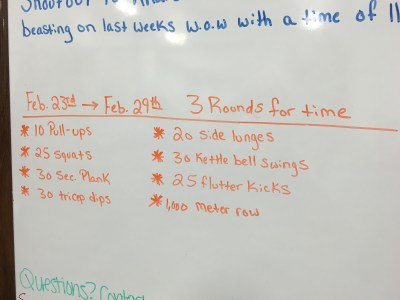 Shoutout to
beasting on last weeks W.O.W with a time of 11
Feb. 23rd → Feb. 29th 3 Rounds for time
* 10 Pull-ups
* 25 squats
* 30 sec. Plank
* 30 tricep dips
* 20 side lunges
* 30 Kettle bell swings
* 25 flutter kicks
* 1,000 meter row
Questions?